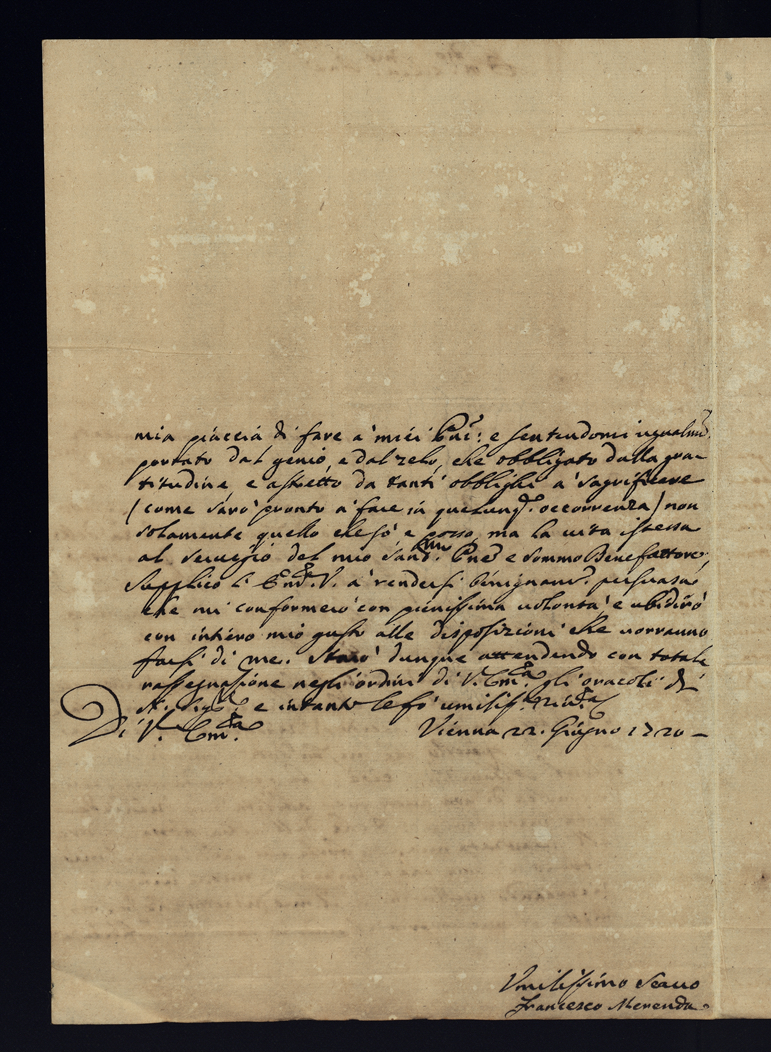 mia piaccia di fare a' miei Pñi: e sentendomi ugualm.te
portato dal genio, e dal zelo, che obbligato dalla gra-
titudine e astretto da tanti obblighi a' sagrificare
(come sarò pronto a' fare in qualunq. occorrenza) non
solamente quello che sò e posso, ma la vita istessa
al servigio del mio Pñe e sommo Benefattore,
supplico l' Em. V. a' rendersi benignam.e persuasa,
che mi conformerò con pienissima volontà e ubidirò
con intiero mio gusto alle disposizioni che vorranno
farsi di me. Starò dunque attendendo con totale
rassegnazione negli ordini di V. Em.a gli oracoli di
e intanto le fò umiliss.
Di V. Em.a Vienna 22. Giugno 1720 –
Umilissimo Servo
Francesco Merenda.